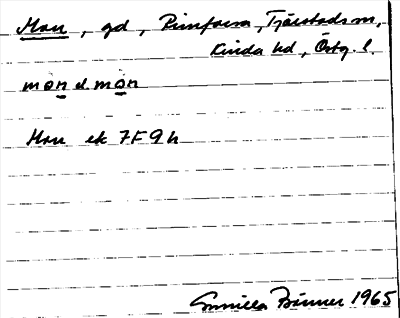 Mon, gd, Rimforsa, Tjärstads sn,
Kinda hd, Östg. l.
mon el. mon
Mon ek 7F9h
Gunilla Binner 1965